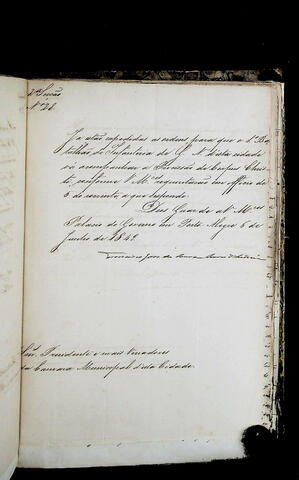 2ª Secção
Nº 21.
Ja estão expedidas as ordens para que o 1º Ba
talhão de Infantaria de G. N. desta cidade
vá acompanhar a Procissão de Corpus Chris
ti, conforme Vª Mces requisitarão em officio de
5 do corrente, a que respondo.
Deus Guarde a Vª Mces
Palacio do Governo em Porto Alegre 6 de
Junho de 1849
Snr. Presidente e mais Vereadores
da Camara Municipal desta Cidade.